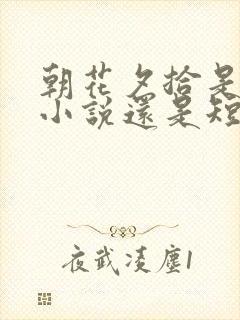 朝花夕拾是
小説還是短
夜武凌塵1